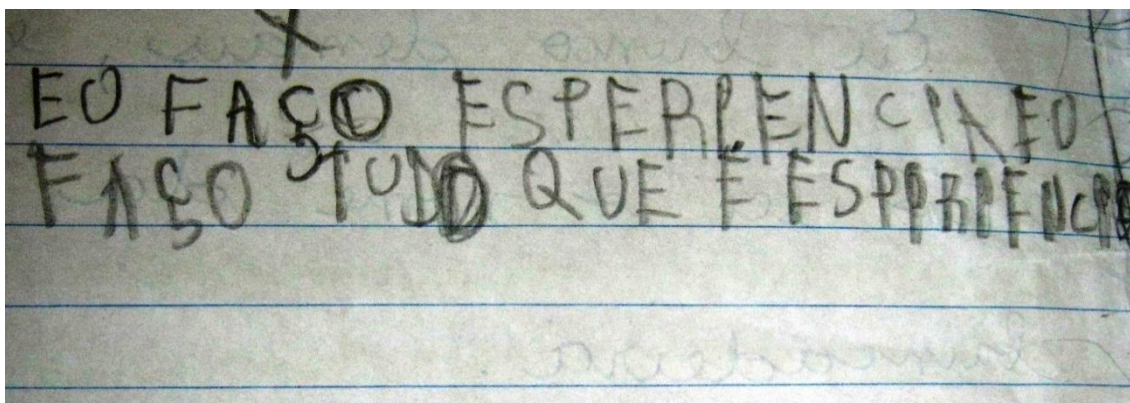 EO FAÇO ESPERIENCIA EO
FAÇO TUDO QUE E ESPPRIENCIA